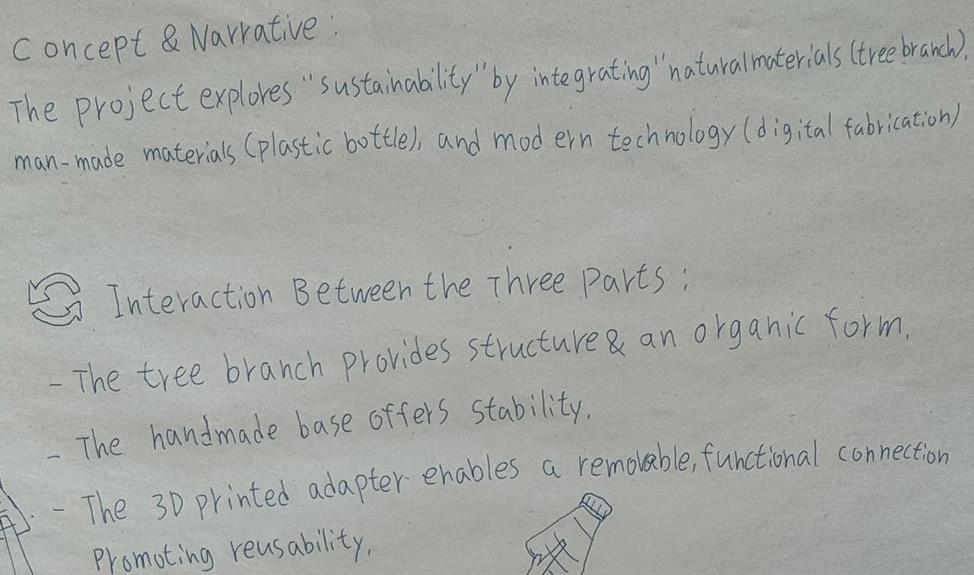 Concept & Narrative :
The project explores "sustainability" by integrating "natural materials (tree branch),
man-made materials (plastic bottle), and modern technology (digital fabrication)
Interaction Between the Three Parts :
- The tree branch provides structure & an organic form.
- The handmade base offers stability.
- The 3D printed adapter enables a removable, functional connection
Promoting reusability.